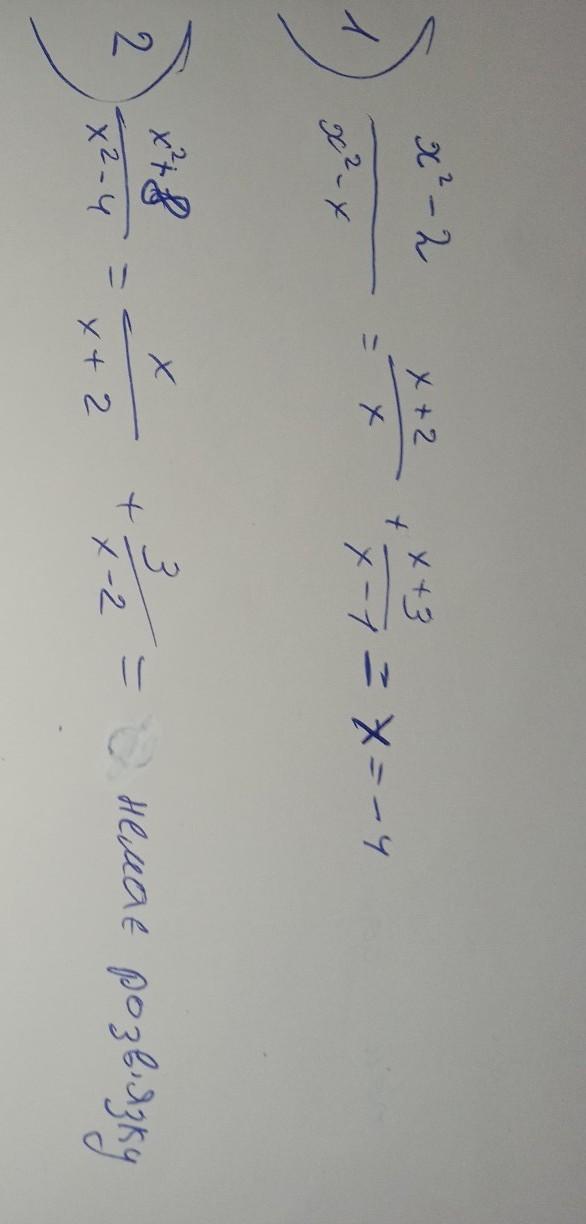 1) (x² - 2)/(x² - x) = (x + 2)/x + (x + 3)/(x - 1) = x = -4
2) (x² + 8)/(x² - 4) = x/(x + 2) + 3/(x - 2) = немає розв'язку